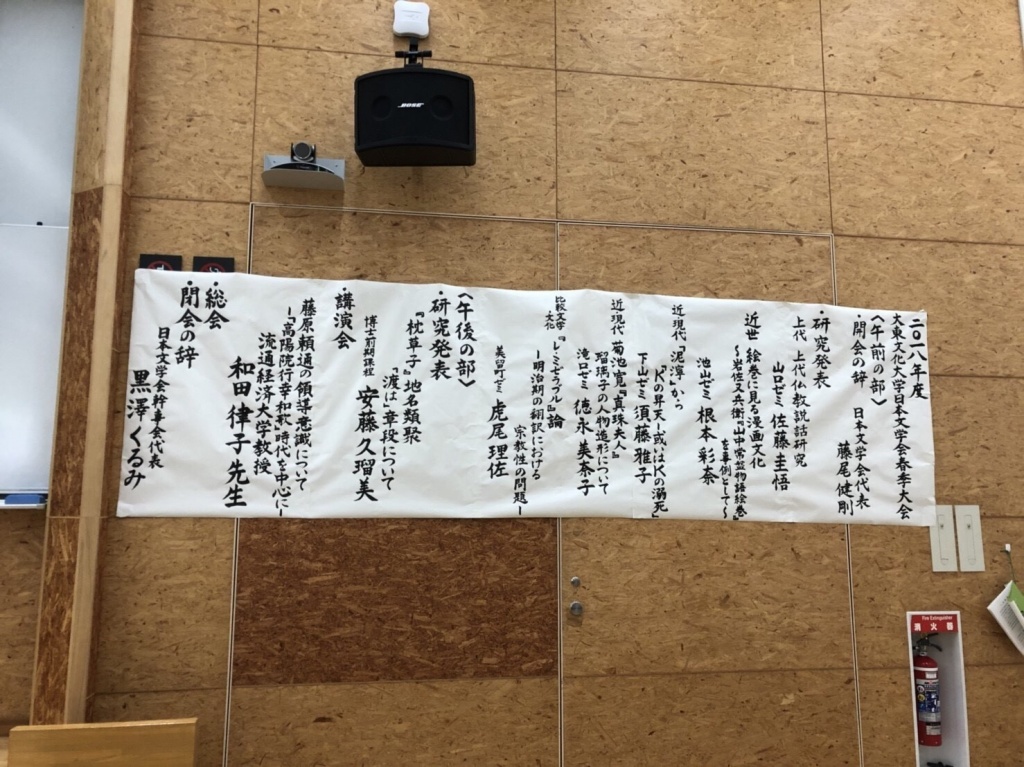 二〇一八年度
大東文化大学日本文学会春季大会
〈午前の部〉
・開会の辞 日本文学会代表
藤尾健剛
・研究発表
上代 上代仏教説話研究
山口ゼミ 佐藤圭悟
近世 絵巻に見る漫画文化
〜岩佐又兵衛『山中常盤物語絵巻』
を事例として〜
池山ゼミ 根本彩奈
近現代『泥濘』から
『Kの昇天―或はKの溺死』
下山ゼミ 須藤雅子
近現代 菊池寛『真珠夫人』
瑠璃子の人物造形について
滝口ゼミ 徳永美奈子
比較文学
文化
『レ・ミゼラブル』論
―明治期の翻訳における
宗教性の問題―
美留町ゼミ 虎尾理佐
〈午後の部〉
・研究発表
『枕草子』地名類聚
『渡は』章段について
博士前期課程 安藤久瑠美
・講演会
藤原頼通の領導意識について
―「高陽院行幸和歌」時代を中心に―
流通経済大学教授
和田律子先生
・総会
・閉会の辞
日本文学会幹事会代表
黒澤くるみ
BOSE
Fire Extinguisher
消火器